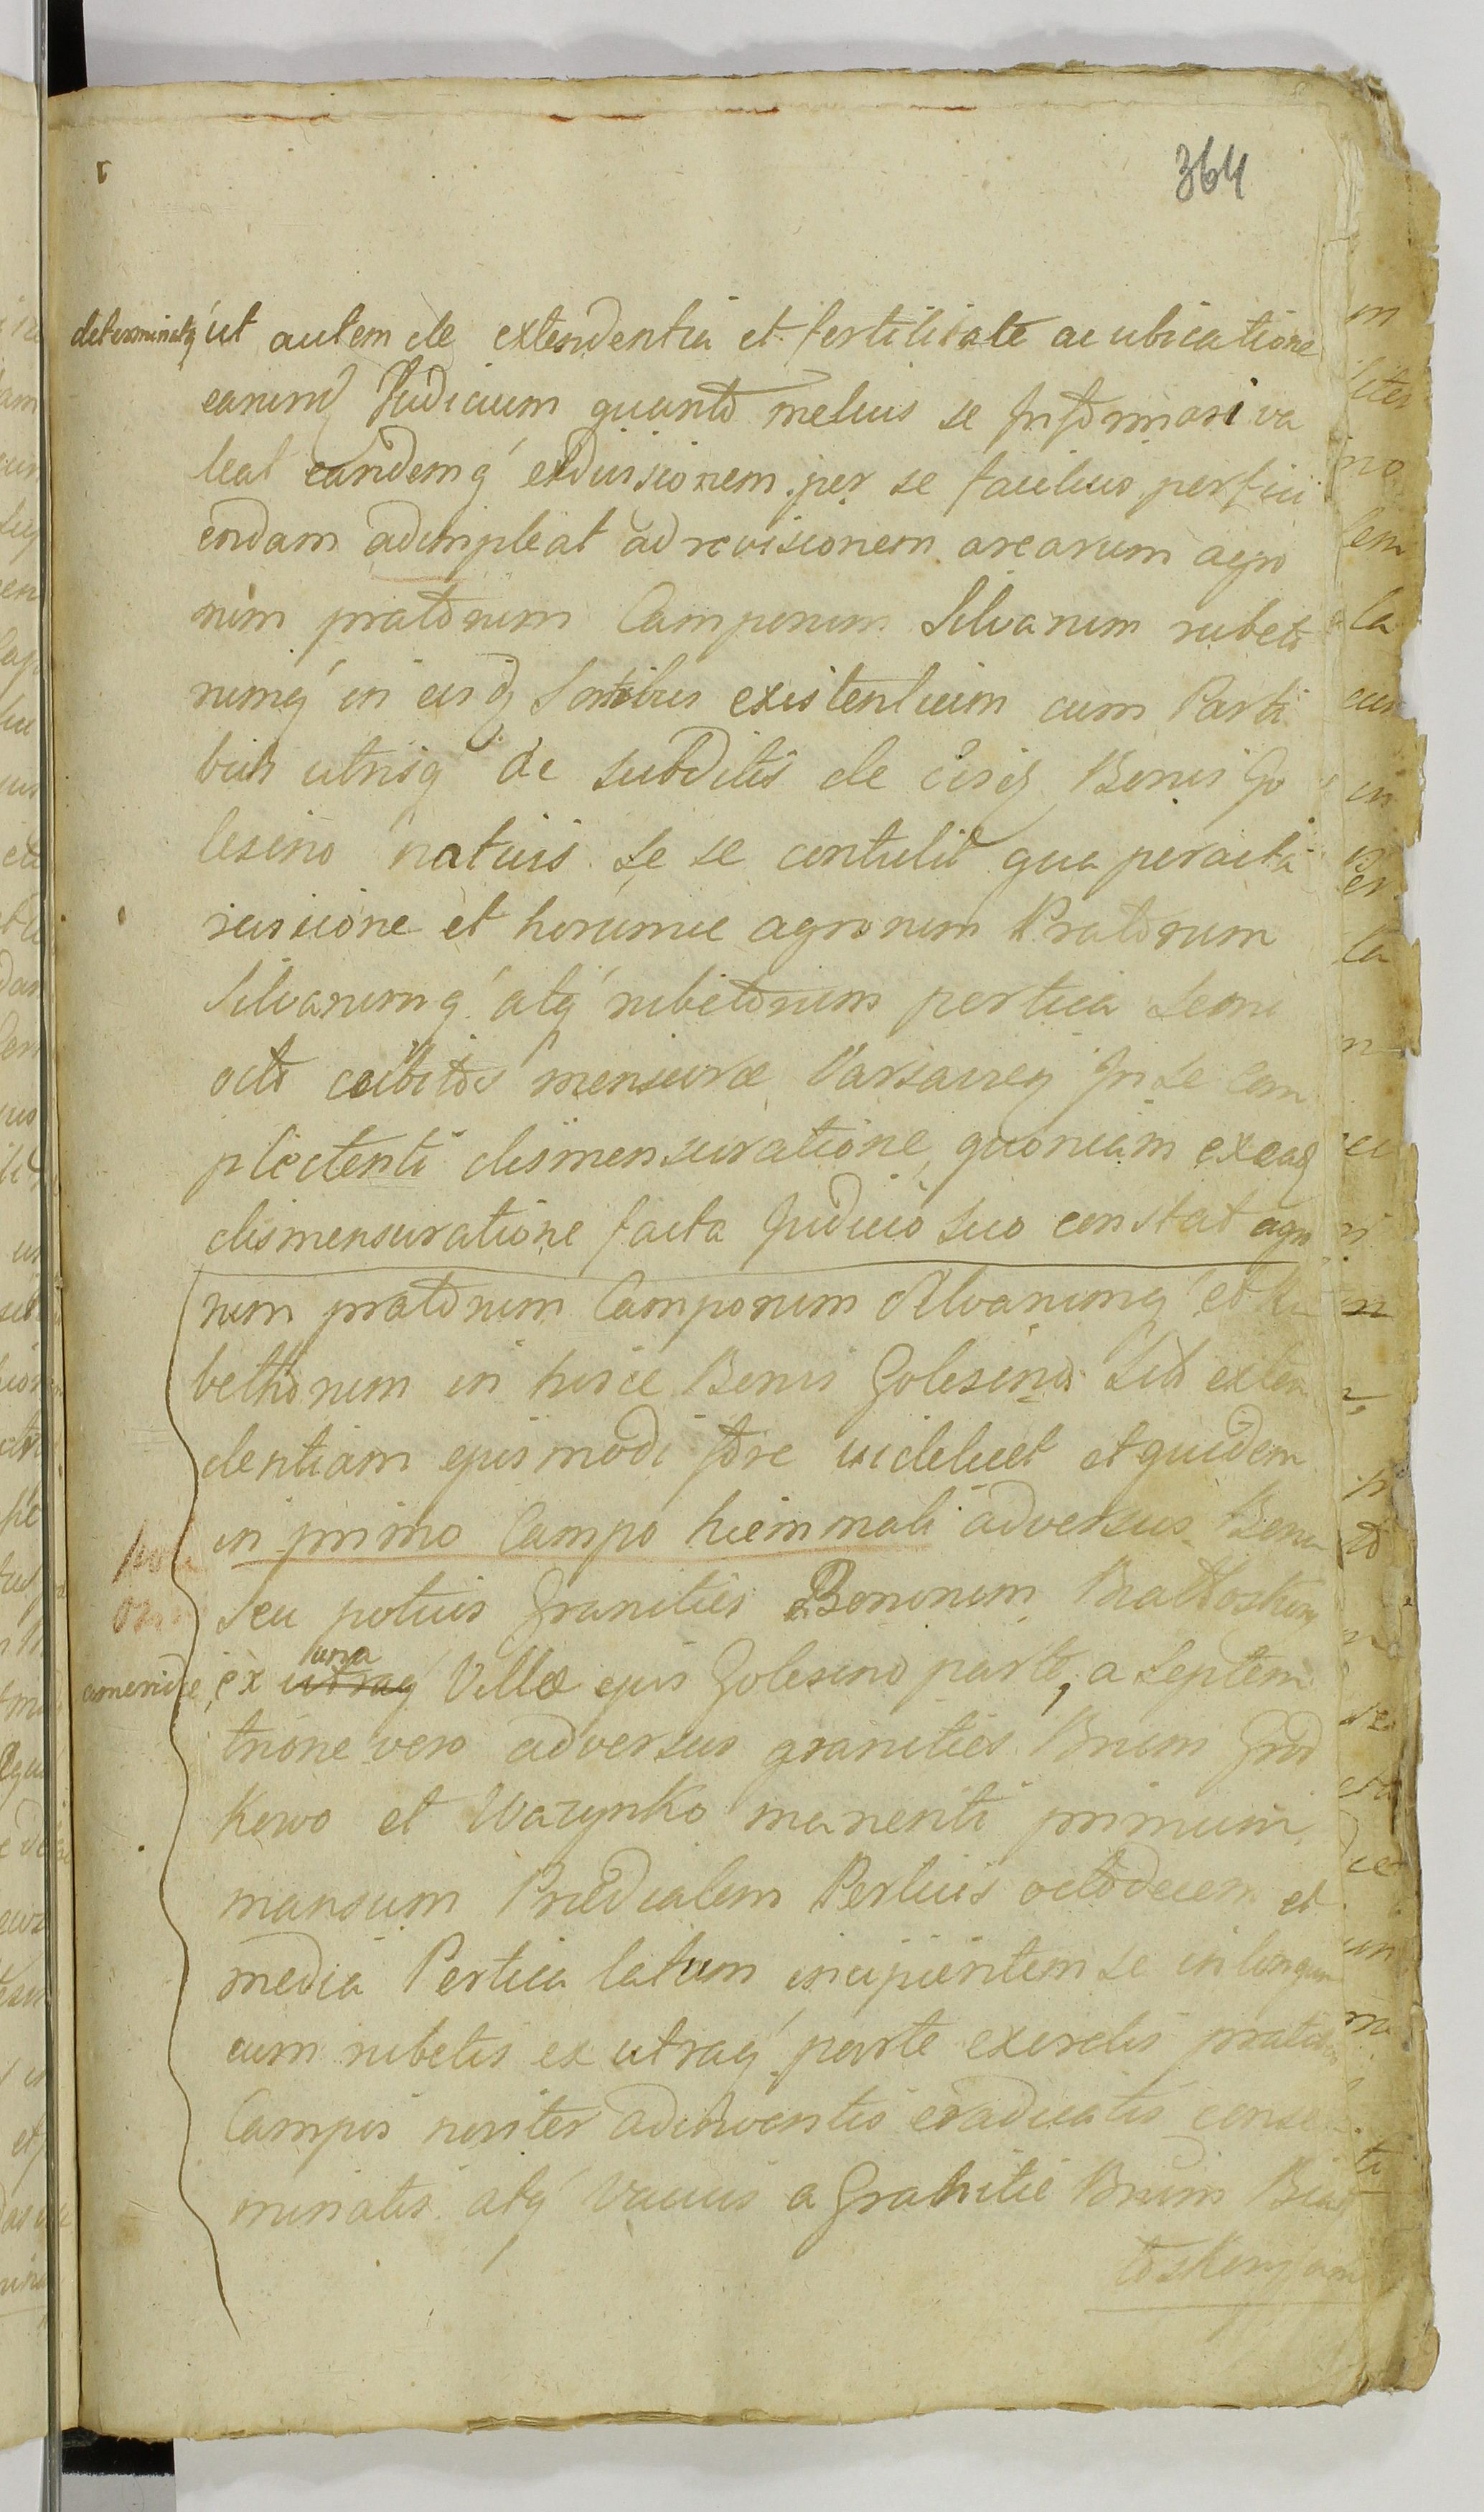 364
determinatq ut autem de extendentia et fertilitate ac ubicatione
earund Judicium quanto melius se Informari va
leat eandemq exdivisionem per se facilius perfici
endam adimpleat ad revisionem arearum agro
rum pratorum Camporum Silvarum rubeto
rumq in eisd Sortibus existentium cum Parti
bus utrisq de subditis de eisd Bonis Go
lesino nativis se se contulit qua peracta
revisione et horumce agrorum Pratorum
Silvarumq atq rubetorum pertica
octo cubitos mensuræ Varsavien In se com
plectenti dismensuratione, quoniam ex ead
dismensuratione facta Judicio suo constat agro
rum pratorum Camporum Silvarumq et Ru
bethorum in hisce Bonis Golesino Sito exten
dentiam ejusmodi fore videlicet et quidem
in primo Campo hiemmali adversus Bona
Seu potius Granities Bonorum
a meridie, ex utraq una Villæ ejus Golesino parte, a Septem
trione vero adversus granities Bnum Grod
kowo et Wazynko manenti primum
mansum Prædialem Perticis octodecem et
media Pertica latum incipientem se in longum
cum rubetis ex utraq parte exerolis pratis
Campis noviter eradicatis conse
minatis atq Vacuis a Granitie Bnum